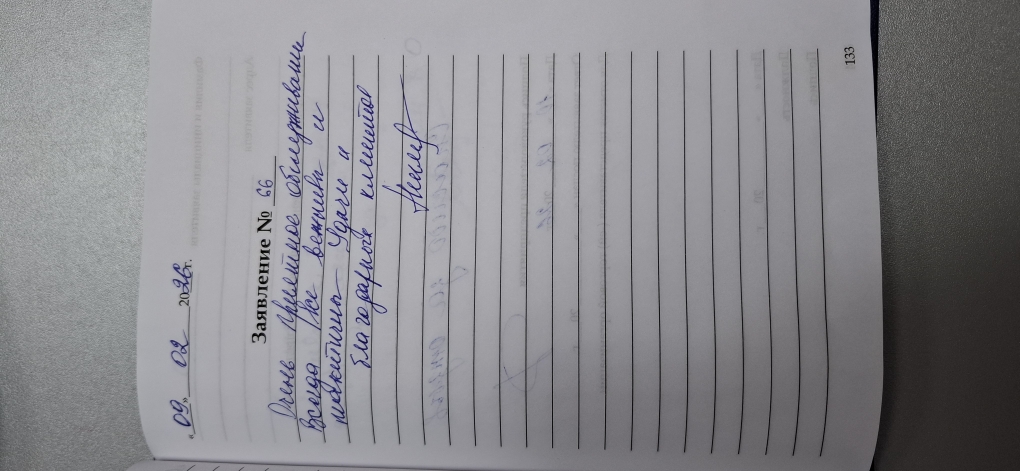 «09» 02 2026г.
Заявление № 66
Очень приятное обслуживание
Всегда все вежливы и
тактичны Удачи и
благодарных клиентов
133